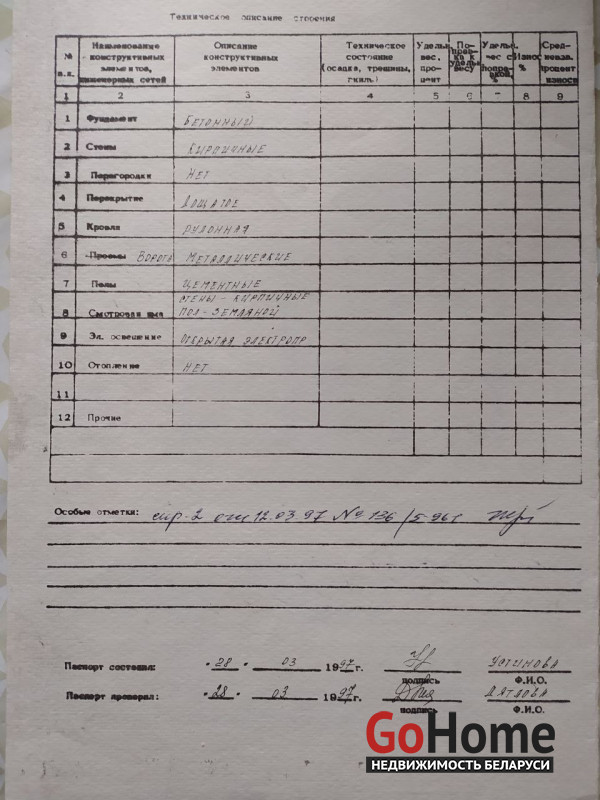 Техническое описание строения
№ п.п. Наименование конструктивных элементов, инженерных сетей Описание конструктивных элементов Техническое состояние (осадка, трещины, гниль) Удельн. вес, про- цент По- прав- ка к удельн. весу Удельн. вес с поправкой, % Износ % Сред- невзв. процент износа
1 2 3 4 5 6 7 8 9
1 Фундамент БЕТОННЫЙ
2 Стены КИРПИЧНЫЕ
3 Перегородки НЕТ
4 Перекрытие ДОЩАТОЕ
5 Кровля РУЛОННАЯ
6 Проемы ВОРОТА МЕТАЛЛИЧЕСКИЕ
7 Полы ЦЕМЕНТНЫЕ
СТЕНЫ - КИРПИЧНЫЕ
8 Смотровая яма ПОЛ - ЗЕМЛЯНОЙ
9 Эл. освещение ОТКРЫТАЯ ЭЛЕКТРОПР
10 Отопление НЕТ
11
12 Прочие
Особые отметки: 12.03.97 № 136/5-961
Паспорт составил: "28" 03 1997г. УСТИНОВА
подпись Ф.И.О.
Паспорт проверил: "28" 03 1997г. ДЯТЛОВА
подпись Ф.И.О.
GoHome
НЕДВИЖИМОСТЬ БЕЛАРУСИ